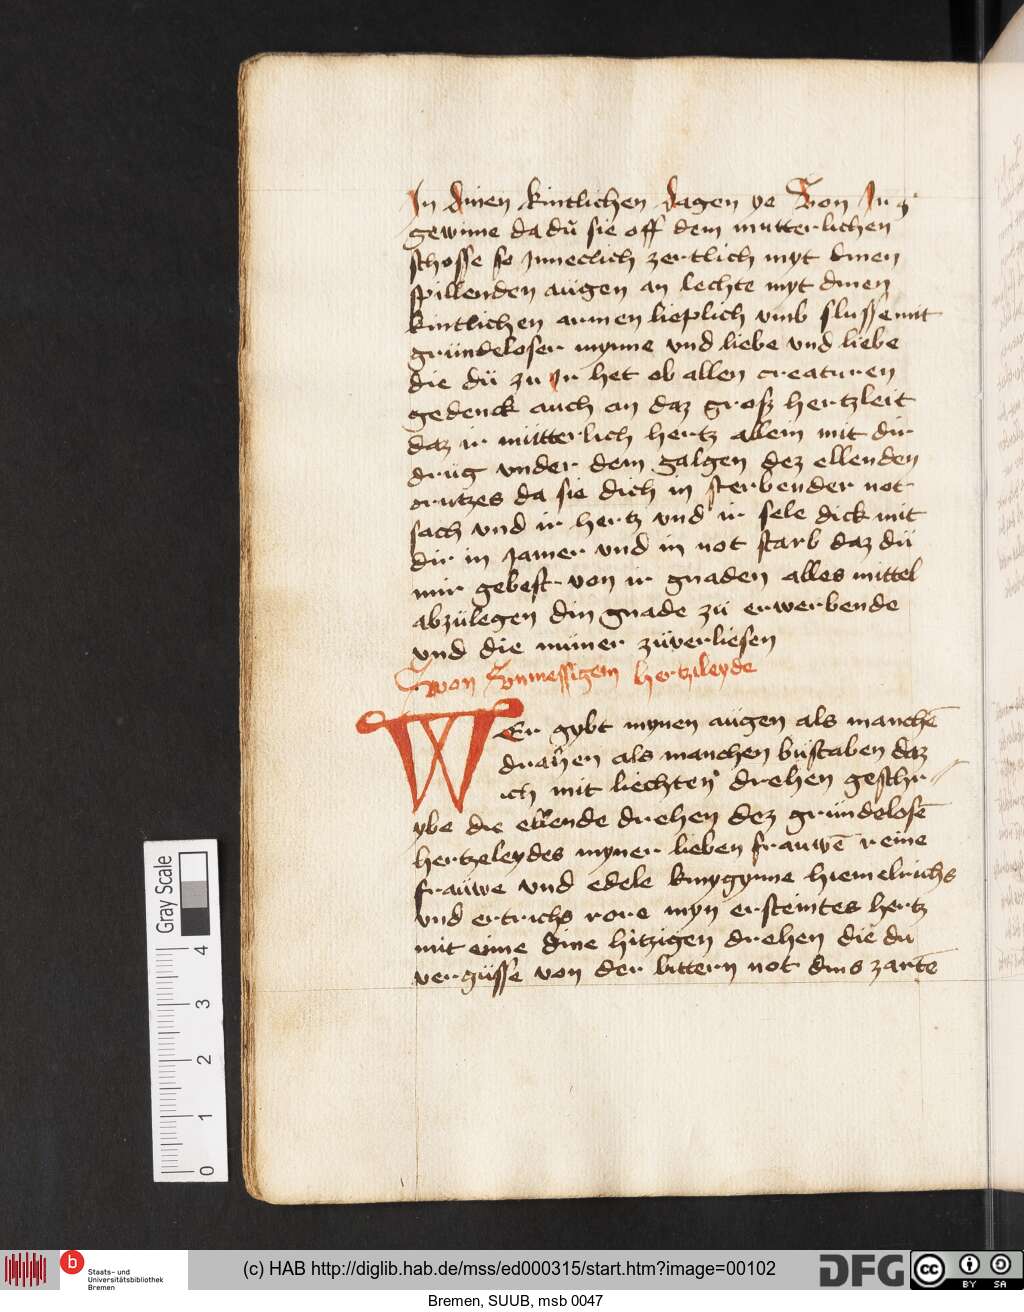 In dinen kintlichen dagen ye Von Ir g
gewinne da dů sie off dem mutterlichen
schosse so Inneclich zertlich myt dinen
spillenden augen an lechte myt dinen
kintlichen armen lieplich vmb slusse mit
gründeloser mynne vnd liebe vnd liebe
die dü zu Ir het ob allen creaturen
gedenck auch an daz grosz hertzleit
daz ir mütterlich hertz allein mit dir
drug vnder dem galgen dez ellenden
crutzes da sie dich in sterbender not
sach vnd ir hertz vnd ir sele dick mit
dir in Jamer vnd in not starb daz dü
mir gebest von ir gnaden alles mittel
abzülegen din gnade zü erwerbende
vnd die nümer züverliesen
Von Vnmessigem hertzileyde
WEr gybt mynen augen als manchē
drahen als manchen büstaben daz
ich mit liechten drehen geschr
ybe die ellende drehen dez gründelosē
hertzeleydes myner lieben frauwē reine
frauwe vnd edele kunygynne hiemelrichs
vnd ertrichs rore myn ersteintes hertz
mit eime dine hitzigen drehen die du
vergüsse von der bittern not dins zartē
Gray Scale
4
3
2
1
0
b
Staats- und
Universitätsbibliothek
Bremen
(c) HAB http://diglib.hab.de/mss/ed000315/start.htm?image=00102
DFG
cc
BY
SA
Bremen, SUUB, msb 0047